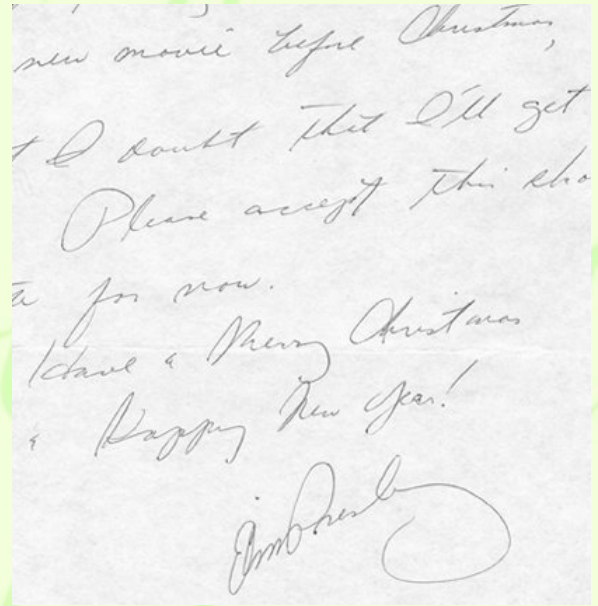 new movie before Christmas,
t I doubt that I'll get
Please accept this sho
te for now.
Have a Merry Christmas
& Happy New Year!
Jim Presley